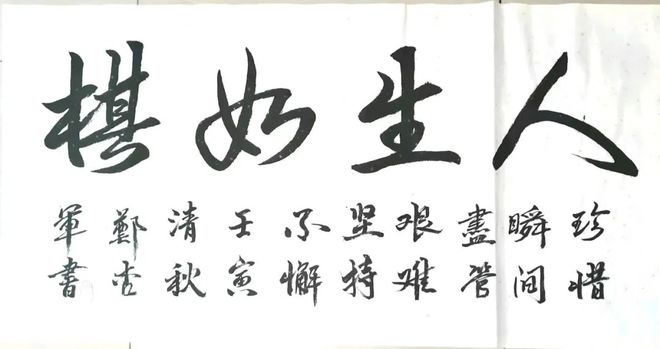 人生如棋
珍惜
瞬间
盡管
艰难
坚持
不懈
壬寅
清秋
鄭
軍書